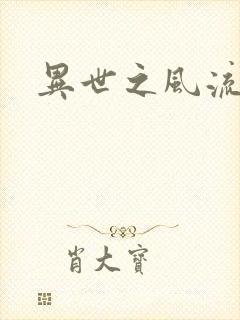 異世之風流
肖大寶